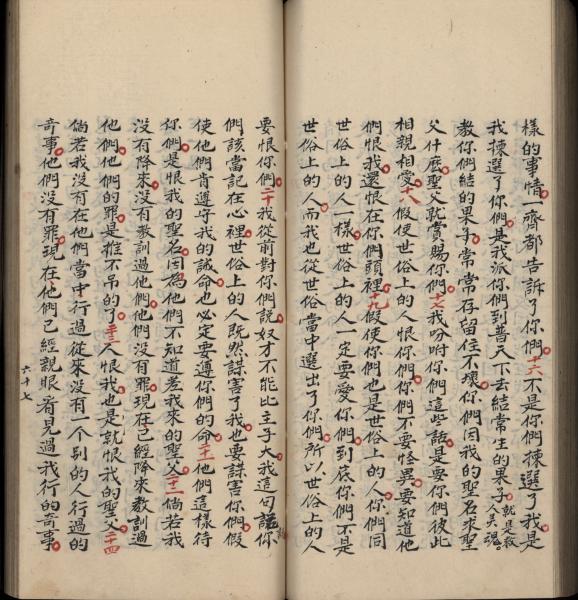 樣的事情一齊都告訴了你們十六不是你們揀選了我是
我揀選了你們是我派你們到普天下去結常生的果子就是救人灵魂。
教你們結的果子常常存留住不壞你們因我的聖名求聖
父什麽聖父就賞賜你們十七我吩咐你們這些話是要你們彼此
相親相愛十八假使世俗上的人恨你們你們不要怪異要知道他
們恨我還恨在你們頭裡十九假使你們也是世俗上的人你們同
世俗上的人一樣世俗上的人一定要愛你們到底你們不是
世俗上的人而我也從世俗當中選出了你們所以世俗上的人
要恨你們二十我從前對你們說奴才不能比主子大我這句話你
們該當記在心裡世俗上的人既然謀害了我也要謀害你們假
使他們肯遵守我的誡命也必定要遵你們的命二一他們這樣待
你們是恨我的聖名因為他們不知道差我來的聖父二二倘若我
沒有降來沒有教訓過他們他們沒有罪現在已經降來教訓過
他們他們的罪是推不吊的了二三人恨我也是就恨我的聖父二四
倘若我沒有在他們當中行過從來沒有一个別的人行過的
奇事他們沒有罪現在他們已經親眼看見過我行的奇事
六十七